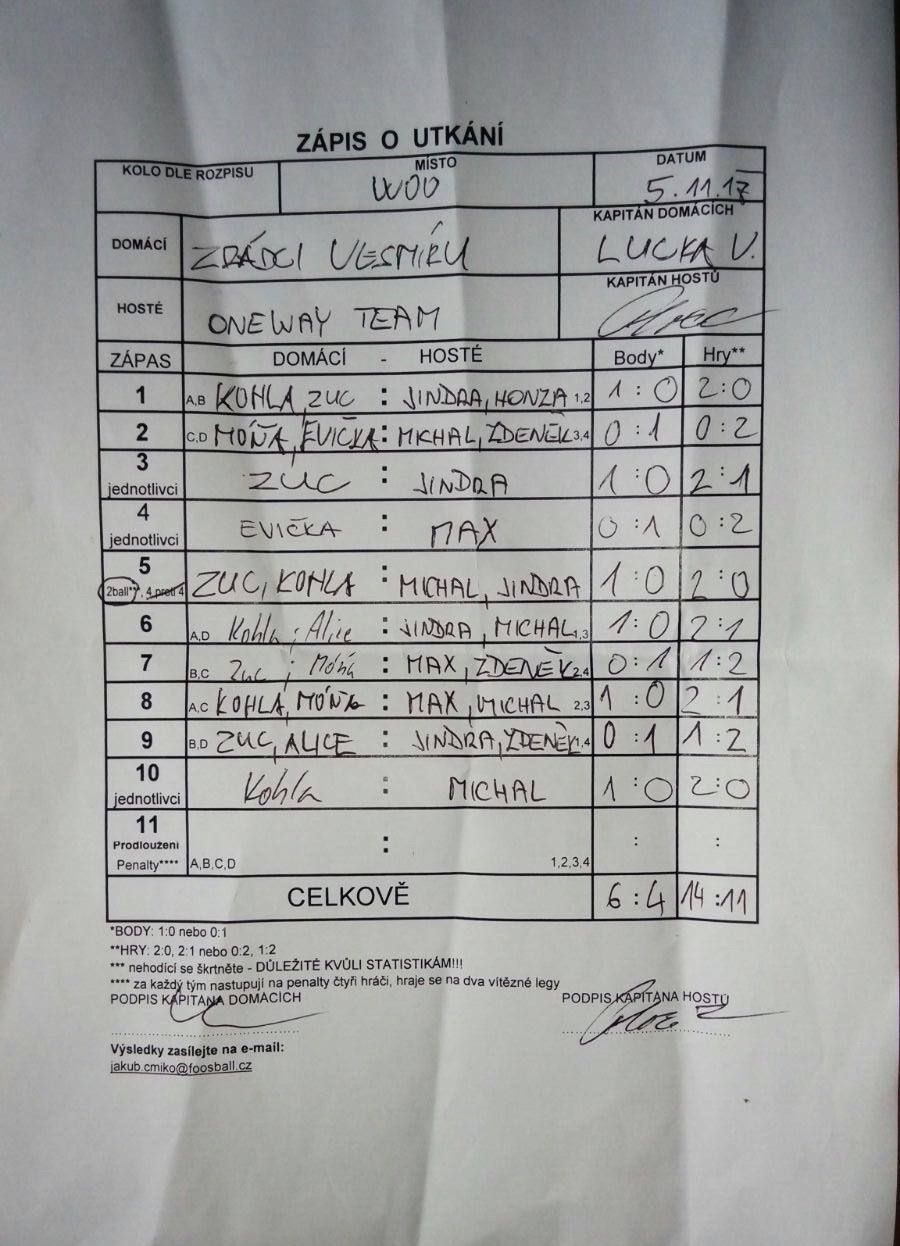 ZÁPIS O UTKÁNÍ
KOLO DLE ROZPISU MÍSTO DATUM
WOO 5.11.17
DOMÁCÍ ZRÁDCI VESMÍRU KAPITÁN DOMÁCÍCH
LUCKA V.
HOSTÉ ONEWAY TEAM KAPITÁN HOSTŮ
ZÁPAS DOMÁCÍ - HOSTÉ Body* Hry**
1 A,B KOHLA, ZUC : JINDRA, HONZA 1,2 1:0 2:0
2 C,D MÓŇA, EVIČKA : MICHAL, ZDENĚK 3,4 0:1 0:2
3 jednotlivci ZUC : JINDRA 1:0 2:1
4 jednotlivci EVIČKA : MAX 0:1 0:2
5 2ball***, 4 proti 4 ZUC, KOHLA : MICHAL, JINDRA 1:0 2:0
6 A,D Kohla ; Alice : JINDRA, MICHAL 1,3 1:0 2:1
7 B,C Zuc ; Móňa : MAX, ZDENĚK 2,4 0:1 1:2
8 A,C KOHLA, MÓŇA : MAX, MICHAL 2,3 1:0 2:1
9 B,D ZUC, ALICE : JINDRA, ZDENĚK 1,4 0:1 1:2
10 jednotlivci Kohla : MICHAL 1:0 2:0
11
Prodloužení : : :
Penalty**** A,B,C,D 1,2,3,4
CELKOVĚ 6:4 14:11
*BODY: 1:0 nebo 0:1
**HRY: 2:0, 2:1 nebo 0:2, 1:2
*** nehodící se škrtněte - DŮLEŽITÉ KVŮLI STATISTIKÁM!!!
**** za každý tým nastupují na penalty čtyři hráči, hraje se na dva vítězné legy
PODPIS KAPITÁNA DOMÁCÍCH PODPIS KAPITÁNA HOSTŮ
Výsledky zasílejte na e-mail:
jakub.cmiko@foosball.cz